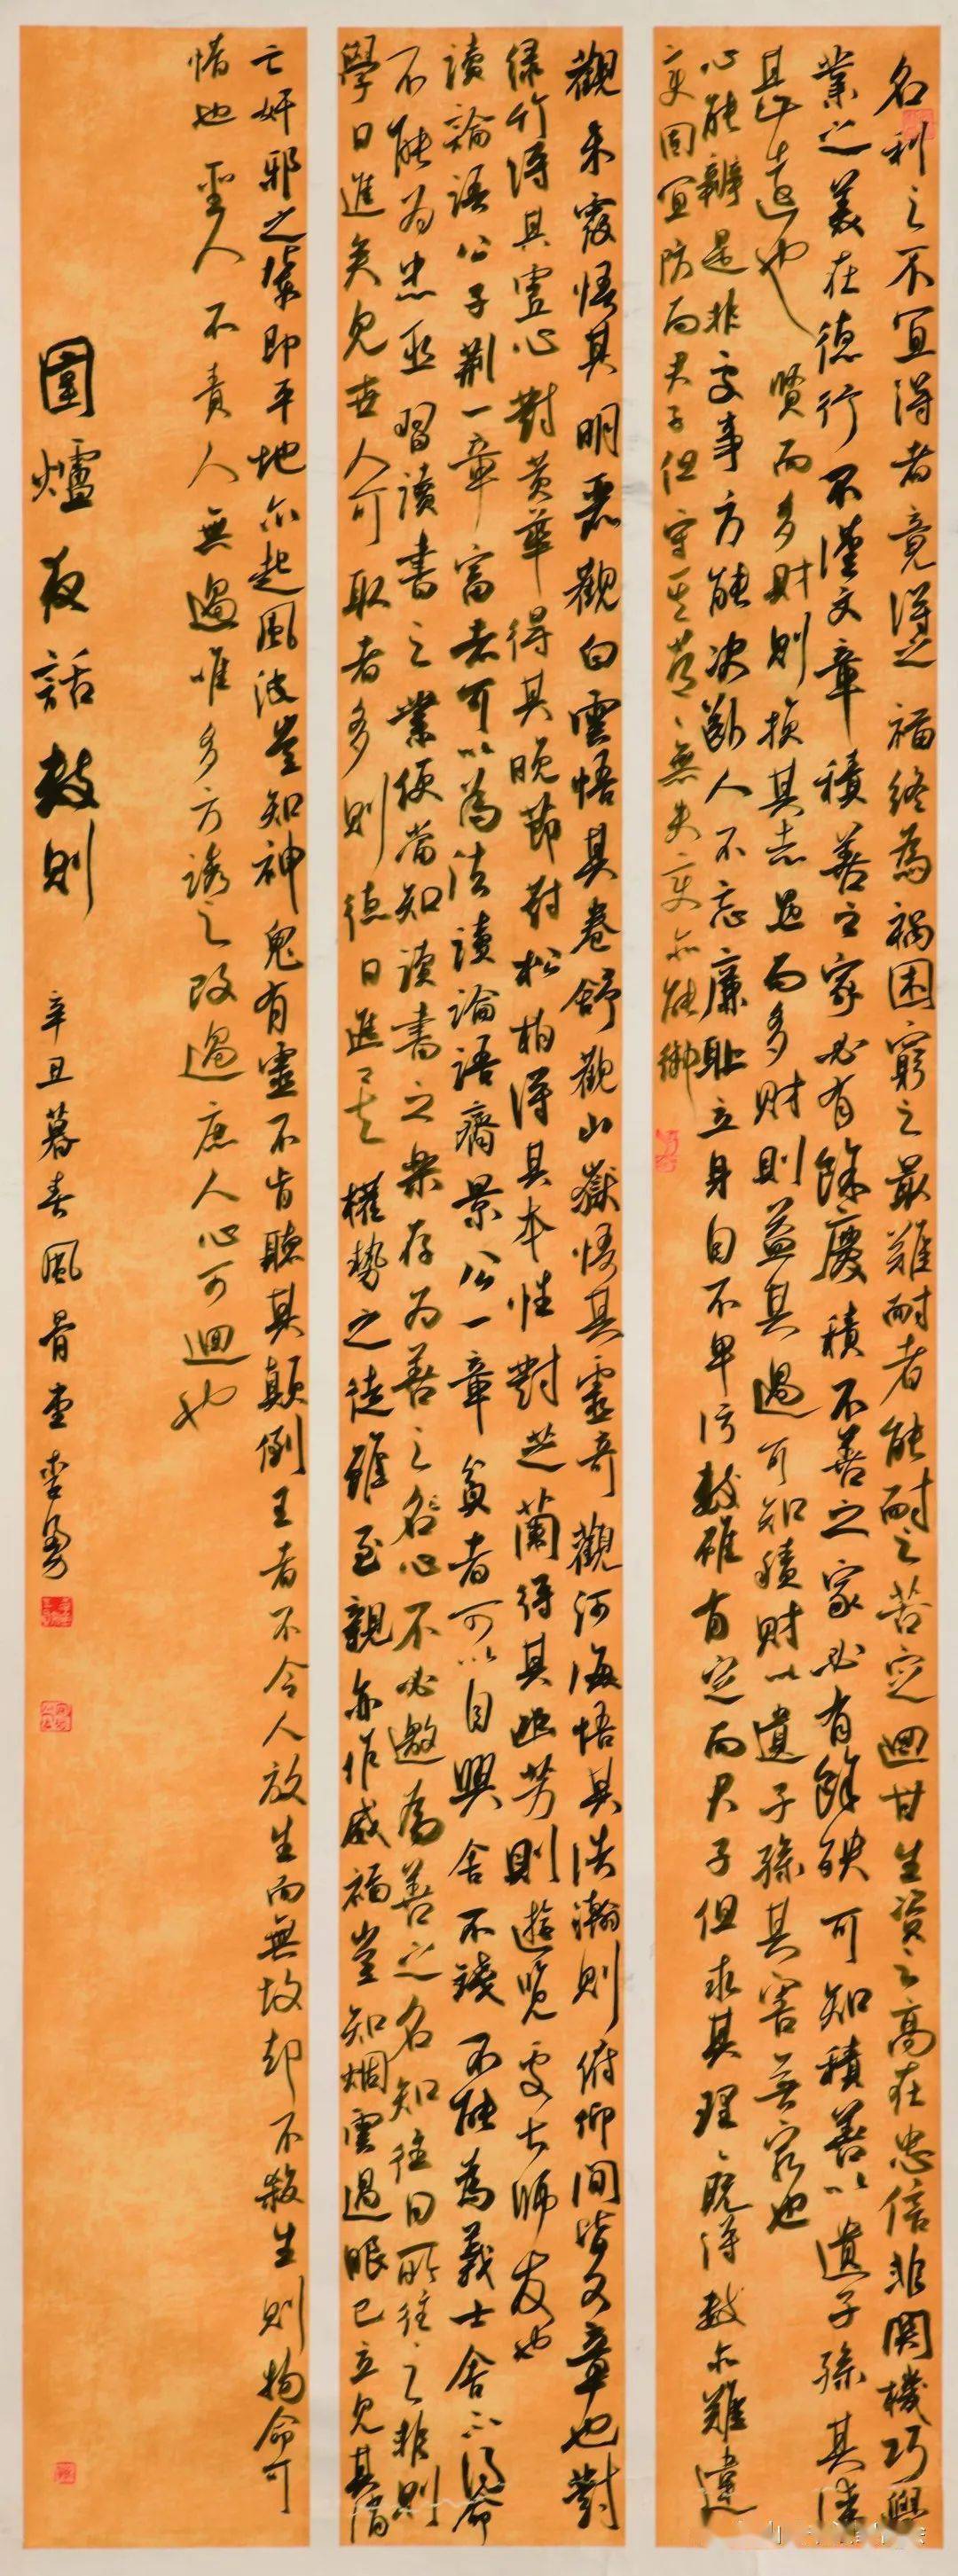 名利之不宜得者竟得之福終為禍困窮之最難耐者能耐之苦定迴甘生資之高在忠信非關機巧學
業之美在德行不僅文章積善之家必有餘慶積不善之家必有餘殃可知積善以遺子孫其謀
甚遠也賢而多財則損其志愚而多財則益其過可知積財以遺子孫其害無窮也
心能辨是非處事方能決斷人不忘廉恥立身自不卑污數雖有定而君子但求其理理既得數亦難違
變固宜防而君子但守其常常無失變亦能御
觀朱霞悟其明麗觀白雲悟其卷舒觀山嶽悟其靈奇觀河海悟其浩瀚則俯仰間皆文章也對
綠竹得其虛心對黃華得其晚節對松柏得其本性對芷蘭得其幽芳則遊覽處皆師友也
讀論語公子荊一章富者可以為法讀論語齊景公一章貧者可以自興舍不錢不能為義士舍不得命
不能為忠臣習讀書之業便當知讀書之樂存為善之名心不必邀為善之名知往日所往之非則
學日進矣見世人可取者多則德日進矣權勢之徒雖至親亦作威福豈知烟雲過眼已立見其消
亡奸邪之輩即平地亦起風波豈知神鬼有靈不肯聽其顛倒王者不令人放生而無故却不殺生則物命可
惜也聖人不責人無過唯多方誘之改過庶人心可迴也
圍爐夜話數則
辛丑暮春風骨堂李勇